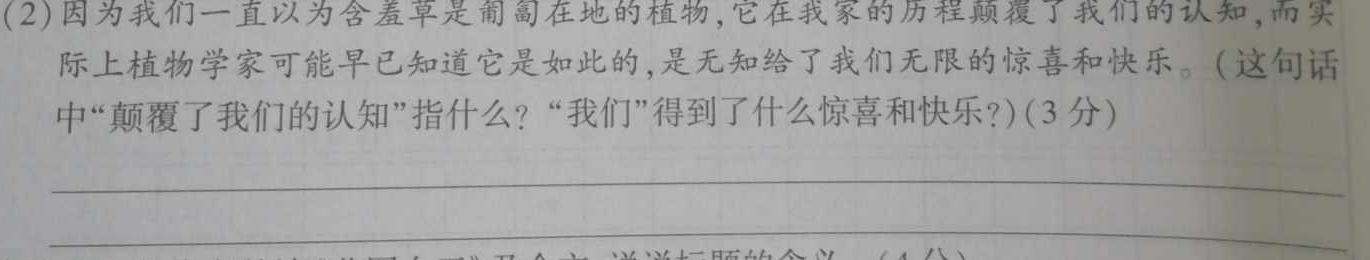 (2)因为我们一直以为含羞草是匍匐在地的植物,它在我家的历程颠覆了我们的认知,而实
际上植物学家可能早已知道它是如此的,是无知给了我们无限的惊喜和快乐。(这句话
中“颠覆了我们的认知”指什么?“我们”得到了什么惊喜和快乐?)(3分)